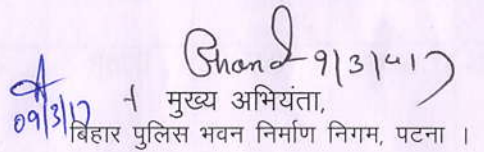 9/3/17
09/3/17
मुख्य अभियंता,
बिहार पुलिस भवन निर्माण निगम, पटना ।